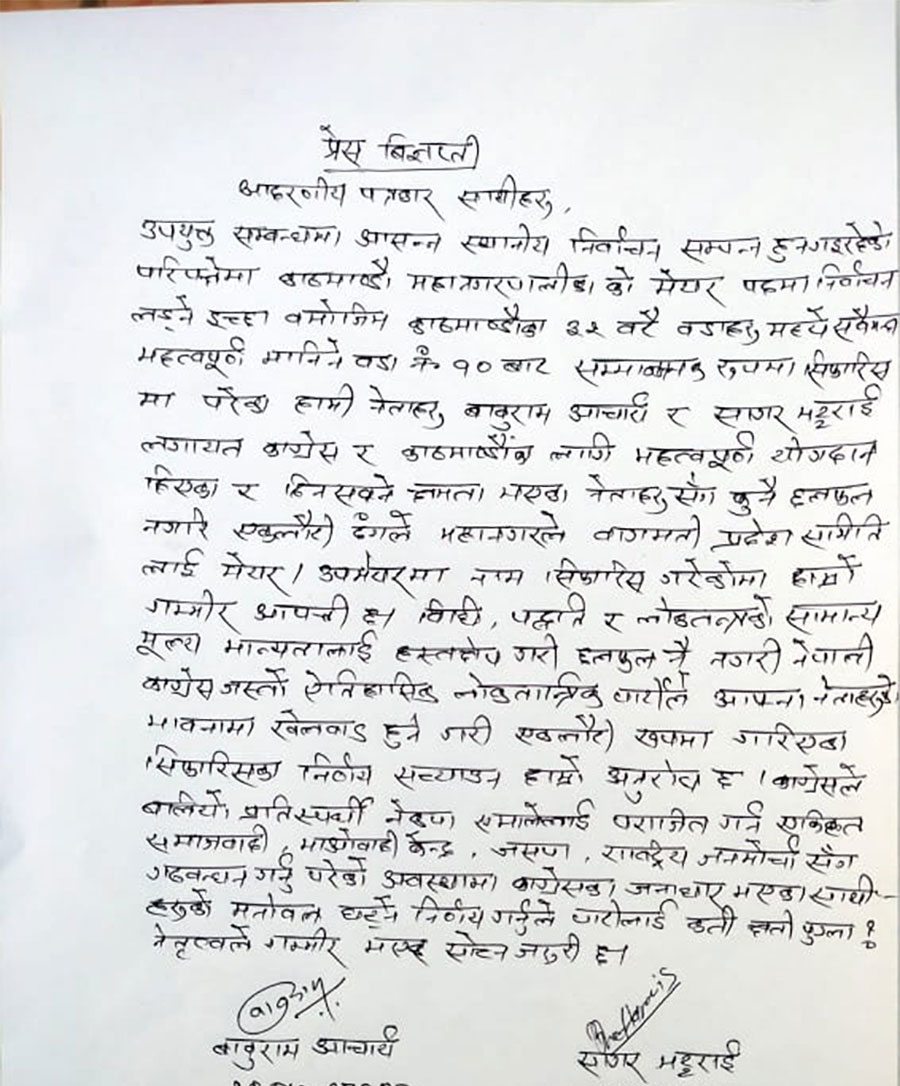 प्रेस बिज्ञप्ती
आदरणीय पत्रकार साथीहरु,
उपयुक्त सम्बन्धमा आसन्न स्थानीय निर्वाचन सम्पन्न हुनगइरहेको
परिपेक्षमा काठमाण्डौ महानगरपालीका को मेयर पदमा निर्वाचन
लड्ने इच्छा वमोजिम काठमाण्डौका ३२ वटै वडाहरु मध्ये सवैभन्दा
महत्वपूर्ण मानिने वडा नं १० बाट सम्मानजनक रुपमा सिफारिस
मा परेका हामी नेताहरु बाबुराम आचार्य र सागर भट्टराई
लगायत कांग्रेस र काठमाण्डौंका लागि महत्वपूर्ण योगदान
दिएका र दिनसक्ने क्षमता भएका नेताहरु सँग कुनै छलफल
नगरि एकलौटी ढंगले महानगरले वागमती प्रदेश समिति
लाई मेयर / उपमेयरमा नाम सिफारिस गरेकोमा हाम्रो
गम्भीर आपत्ती छ। विधी, पद्धति र लोकतन्त्रको सामान्य
मूल्य मान्यतालाई हस्तक्षेप गरी छलफल नै नगरी नेपाली
कांग्रेस जस्तो ऐतिहासिक लोकतान्त्रिक पार्टीले आफ्ना नेताहरुको
भावनामा खेलवाड हुने गरी एकलौटी रुपमा गरिएका
सिफारिसका निर्णय सच्याउन हाम्रो अनुरोध छ । कांग्रेसले
बलियो प्रतिस्पर्धी नेकपा एमालेलाई पराजित गर्न एकिकृत
समाजवादी, माओवादी केन्द्र, जसपा, राष्ट्रिय जनमोर्चा सँग
गठवन्धन गर्नु परेको अवस्थामा कांग्रेसका जनाधार भएका साथी-
हरुको मनोवल घट्ने निर्णय गर्नुले पार्टीलाई कती क्षती पुग्ला ?
नेतृत्वले गम्भीर भएर सोच्न जरुरी छ।
बाबुराम आचार्य
सागर भट्टराई